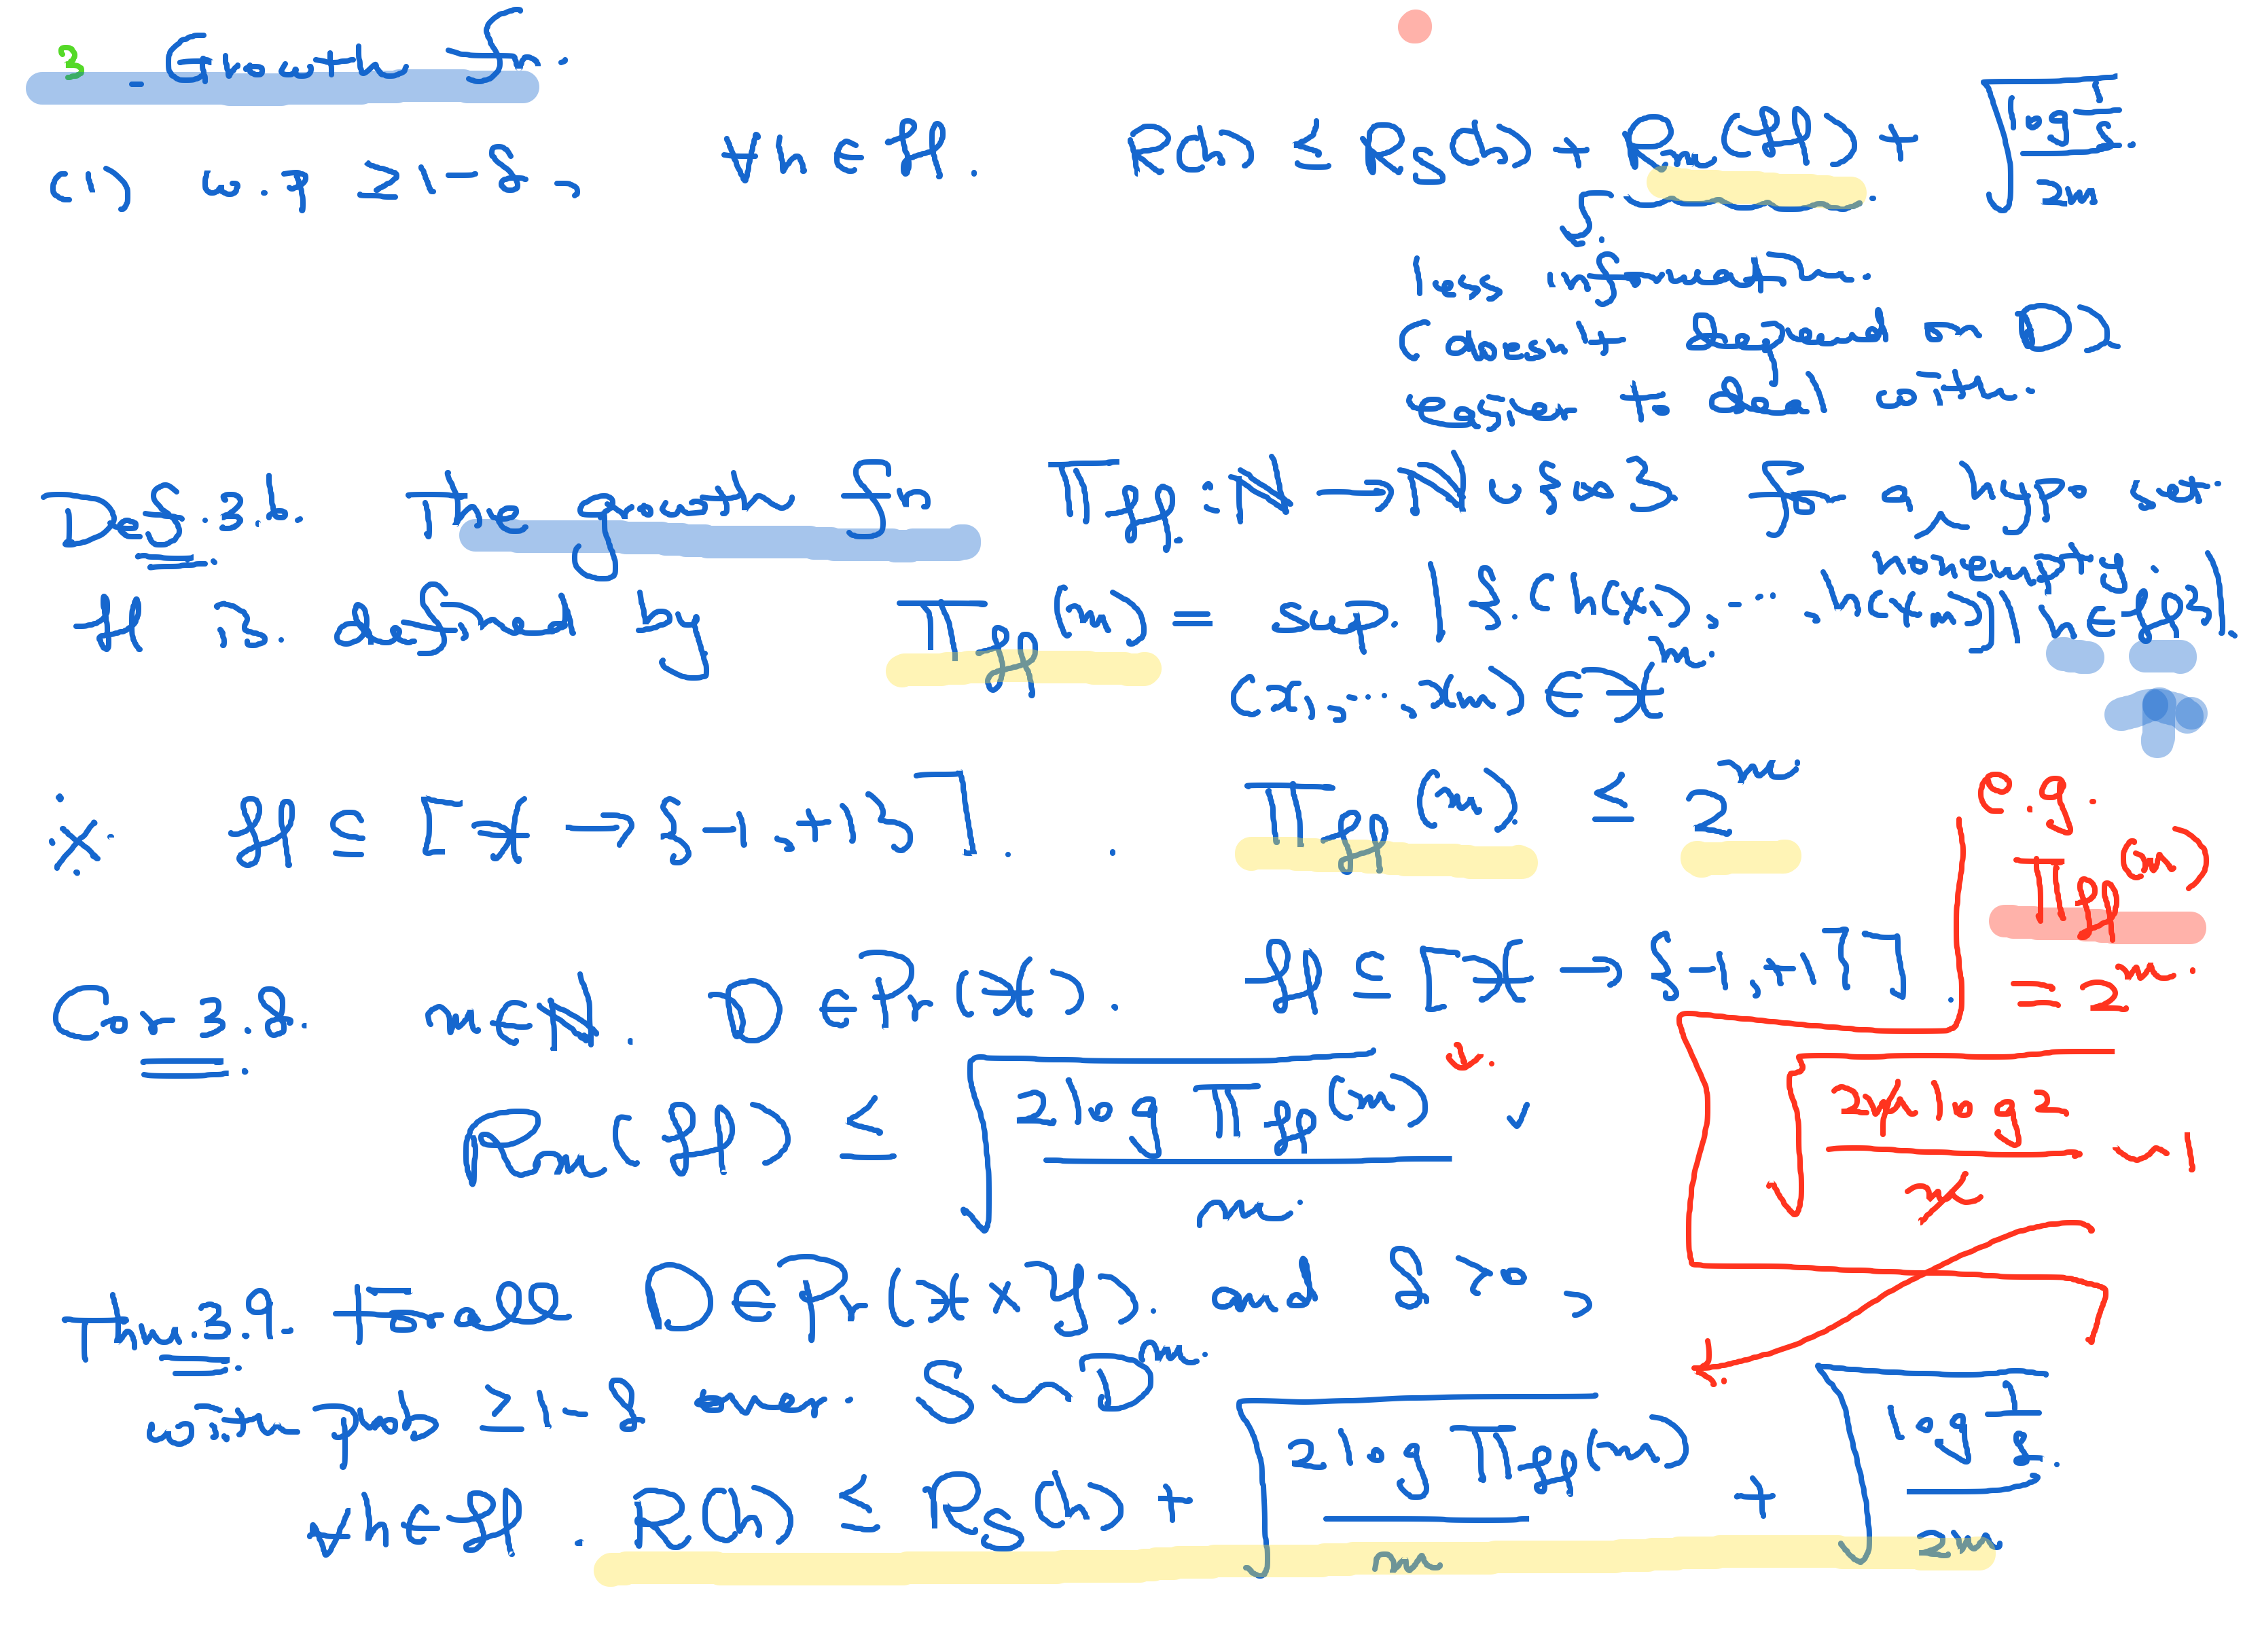 3 - Growth f.
(1) w.p ≥ 1-δ, ∀h∈H. R(h) ≤ R_S(h) + R_m(H) + √(log 1/δ / 2m)
less information.
(doesn't depend on D)
easier to deal with.
Def. 3.6. The growth fn Π_H : N → N ∪ {∞} for a hypo set.
H is defined by Π_H(m) = sup |{(h(x_1), ..., h(x_m)) | h∈H}|.
(x_1, ..., x_m) ∈ X^m
nonempty.
※ H ⊆ [X → {-1, +1}]. Π_H(m) ≤ 2^m
e.g.
Π_H(m)
= 2^m.
Cor 3.8. m∈N. D∈Pr(X). H ⊆ [X → {-1, +1}].
R_m(H) ≤ √(2 log Π_H(m) / m)
√(2m log 2 / m) ~ 1
Thm. 3.9. For all D∈Pr(X×Y). and δ > 0,
with prob ≥ 1-δ over S ~ D^m.
∀h∈H. R(h) ≤ R_S(h) + √(2 log Π_H(m) / m) + √(log 1/δ / 2m)